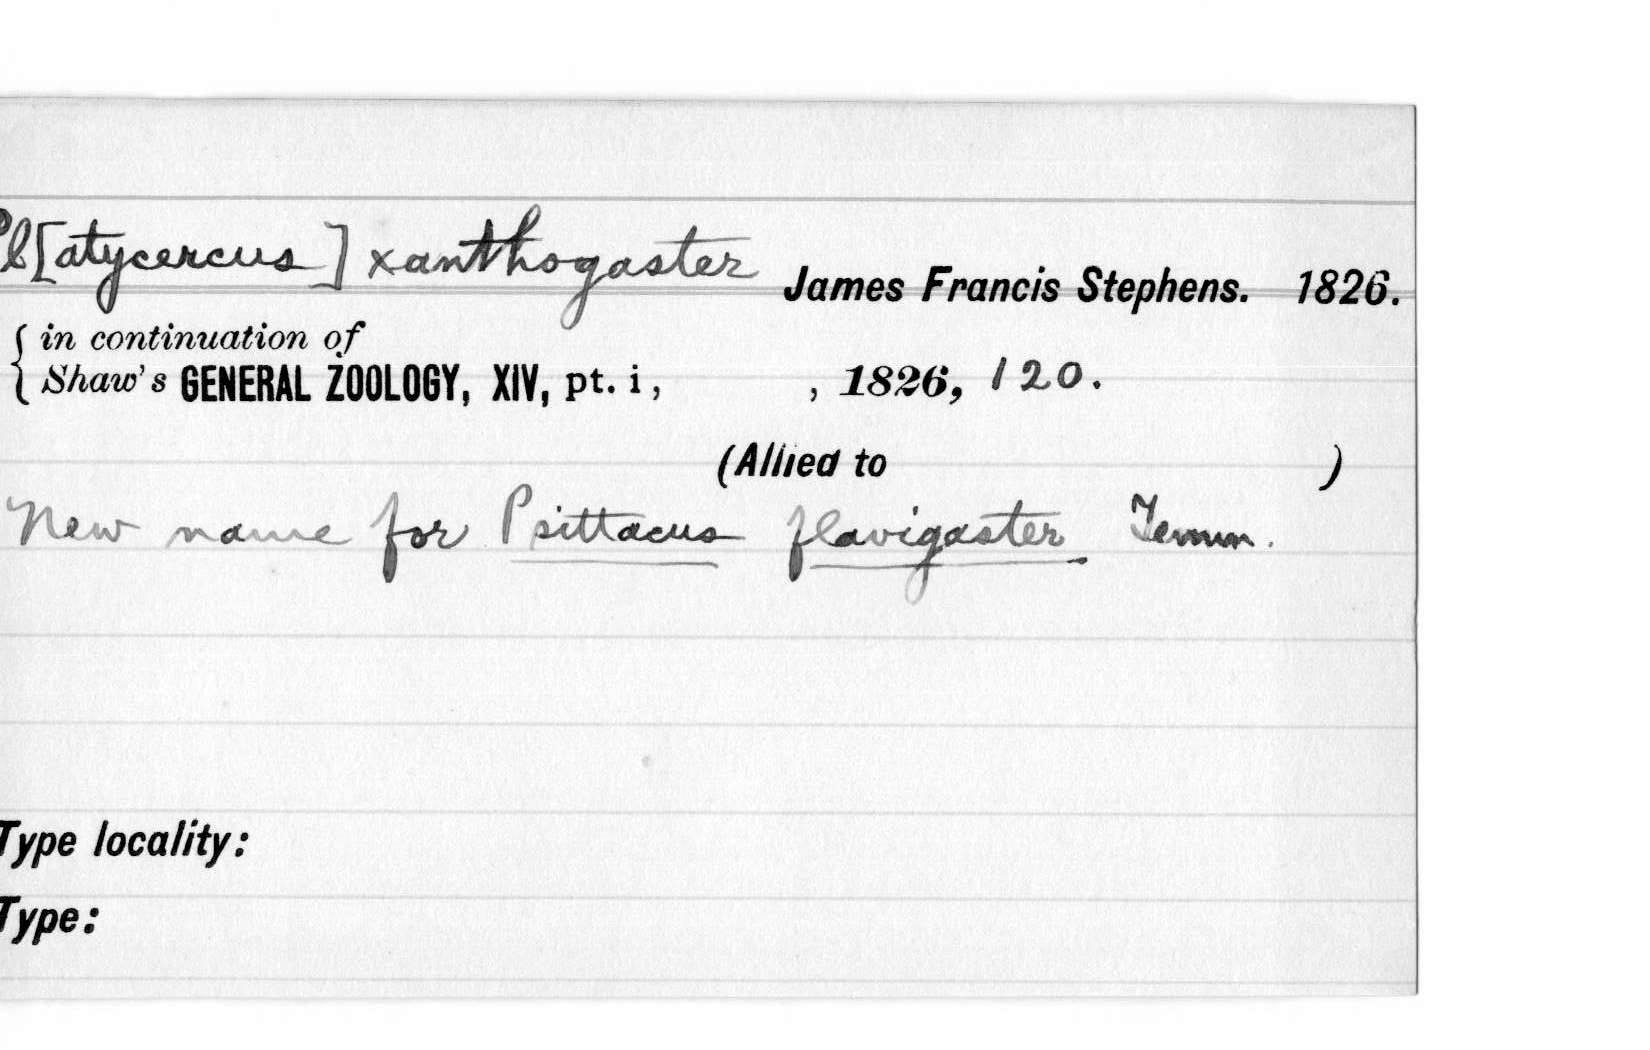 Pl[atycercus] xanthogaster James Francis Stephens. 1826.
{ in continuation of
{ Shaw's GENERAL ZOOLOGY, XIV, pt. i, , 1826, 120.
(Allied to )
New name for Psittacus flavigaster Temm.
Type locality:
Type: